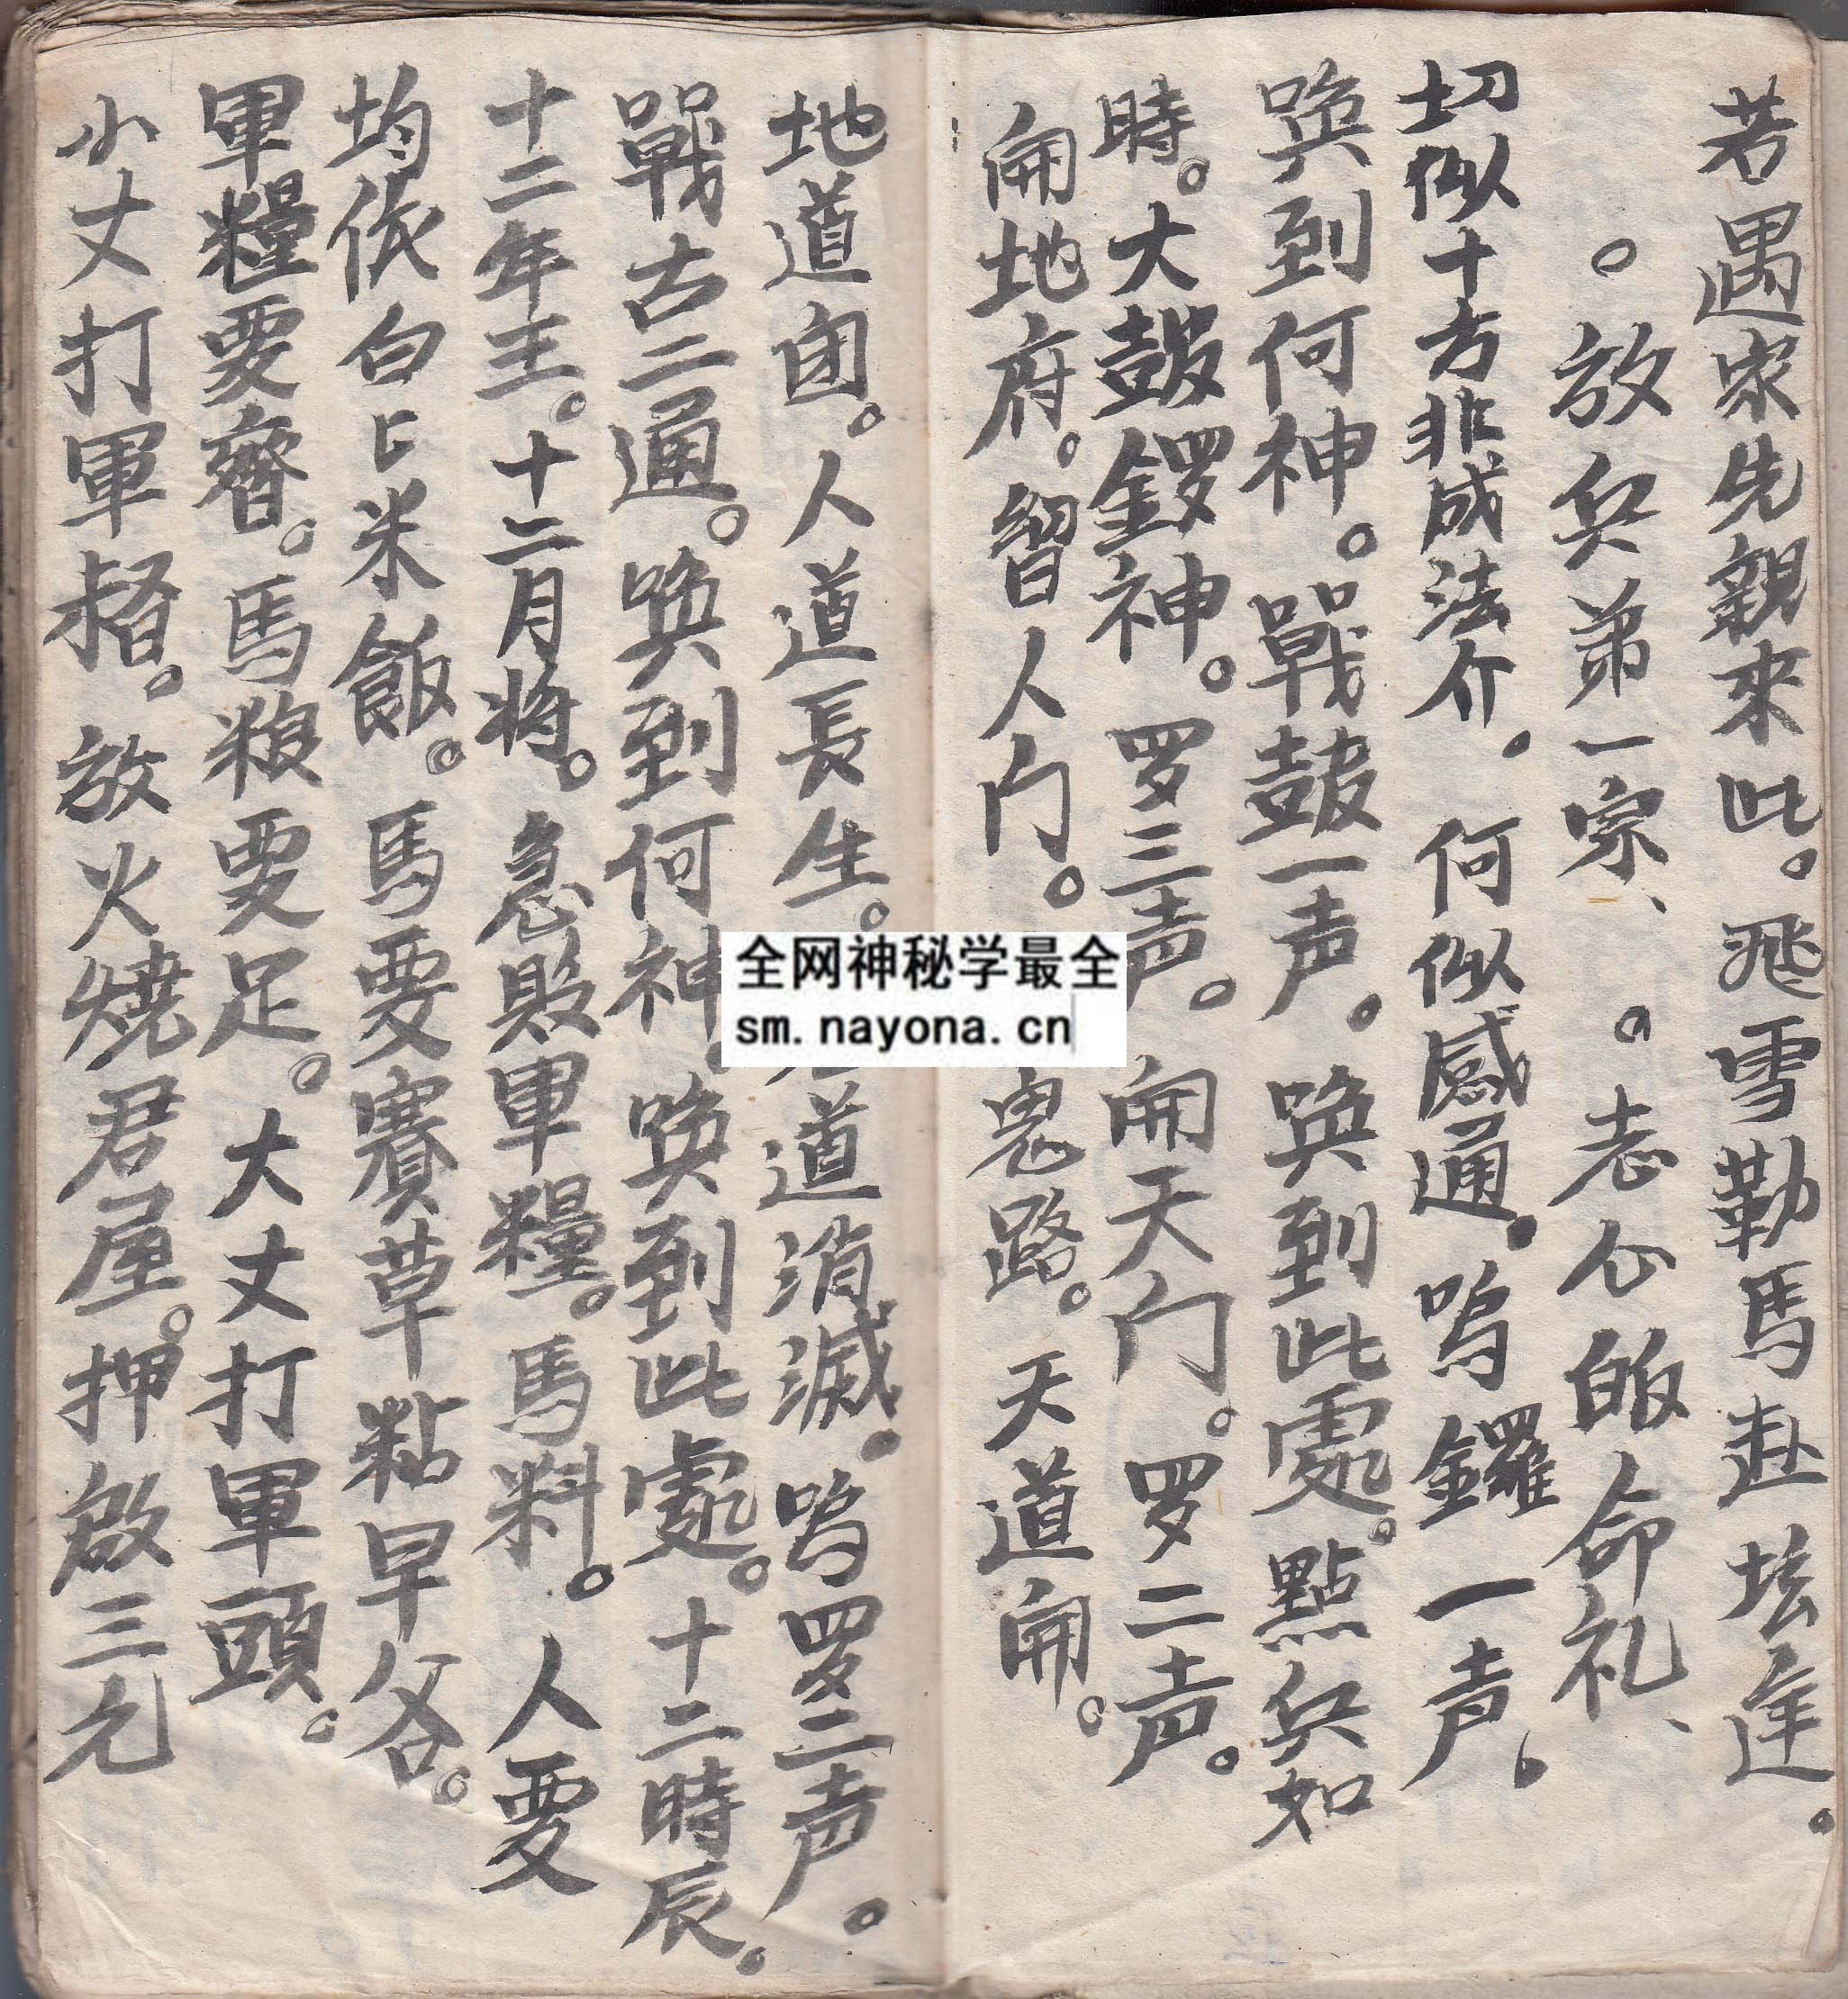 若遇家先親來此。飛雪勒馬赴坛庭。
。放兵弟一宗、。志心皈命礼、
切似十方非成法介。何似感通。鸣鑼一声。
唤到何神。戰鼓一声。唤到此處。點兵如
時。大鼓鑼神。罗三声。開天门。罗二声。
開地府。留人门。鬼路。天道開。
地道固。人道長生。道消滅。鸣罗二声。
戰古二通。唤到何神。唤到此處。十二時辰。
十二年王。十二月将。急敗軍糧。馬料。人要
均依白匕米飯。馬要賽草粘早各。
軍糧要齊。馬粮要足。大丈打軍頭。
小丈打軍督。放火燒君屋。押啟三元
全网神秘学最全
sm.nayona.cn